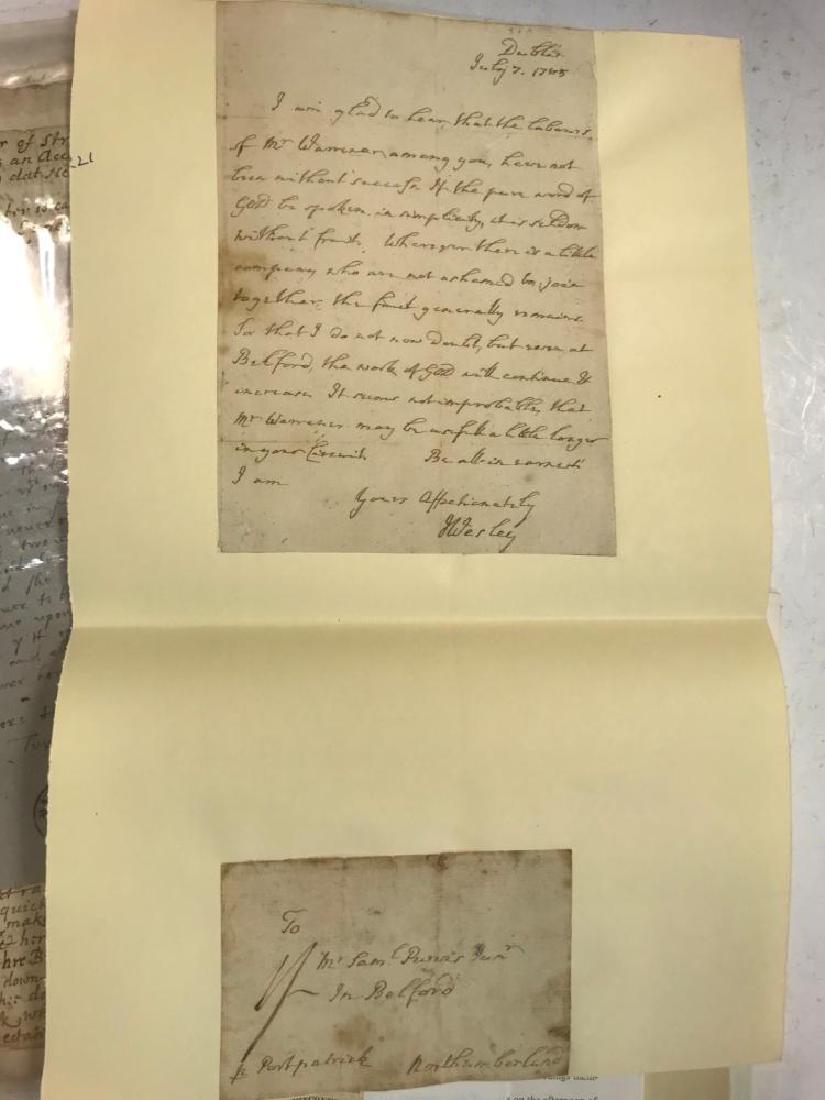 Dublin
July 7. 1785
I am glad to hear, that the labours
of Mr Warrener, among you, have not
been without success. If the pure word of
GOD be spoken, in simplicity, it is seldom
without fruit. Wherever there is a little
company who are not ashamed to join
together, the fruit generally remains
For that I do not now Doubt, but even at
Belford, the work of GOD will continue &
increase. It seems not improbable, that
Mr Warrener may be useful a little longer
in your Circuit. Be all in earnest
I am
Yours Affectionately
JWesley
To
Mr Saml Purvis Junr
In Belford
Portpatrick Northumberland
r of Str
an Acc
21
quic
mak
her
hre B
down
on the afternoon of